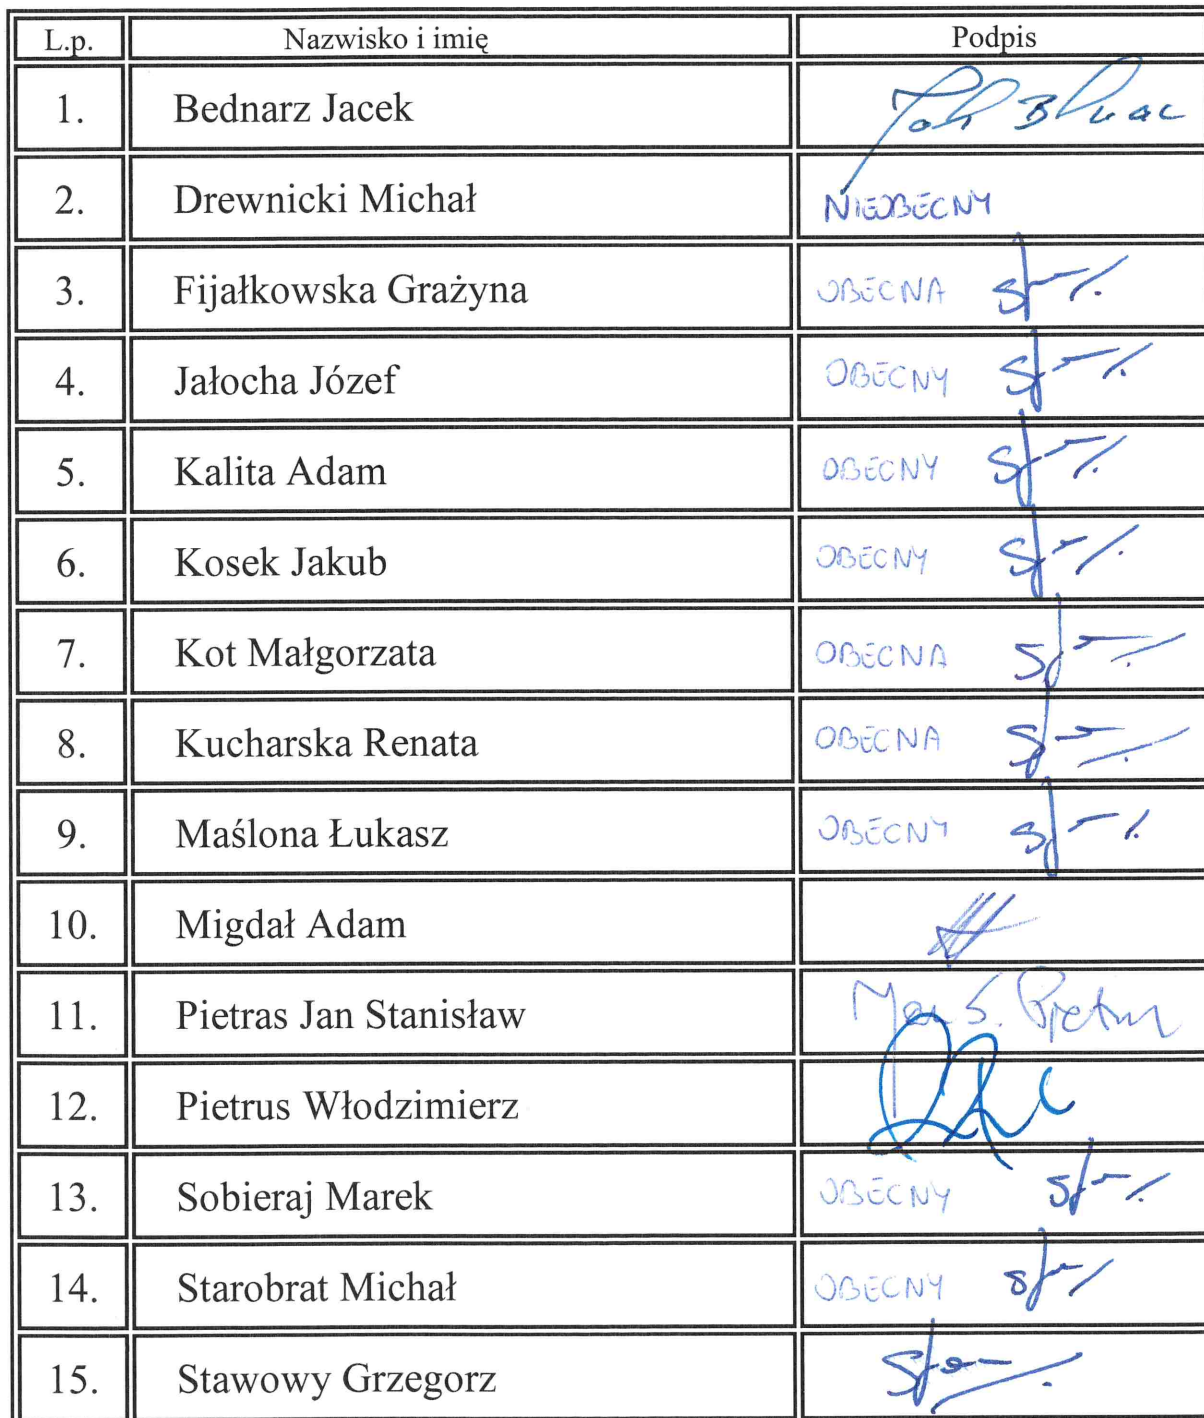 L.p. Nazwisko i imię Podpis
1. Bednarz Jacek
2. Drewnicki Michał NIEOBECNY
3. Fijałkowska Grażyna OBECNA
4. Jałocha Józef OBECNY
5. Kalita Adam OBECNY
6. Kosek Jakub OBECNY
7. Kot Małgorzata OBECNA
8. Kucharska Renata OBECNA
9. Maślona Łukasz OBECNY
10. Migdał Adam
11. Pietras Jan Stanisław
12. Pietrus Włodzimierz
13. Sobieraj Marek OBECNY
14. Starobrat Michał OBECNY
15. Stawowy Grzegorz